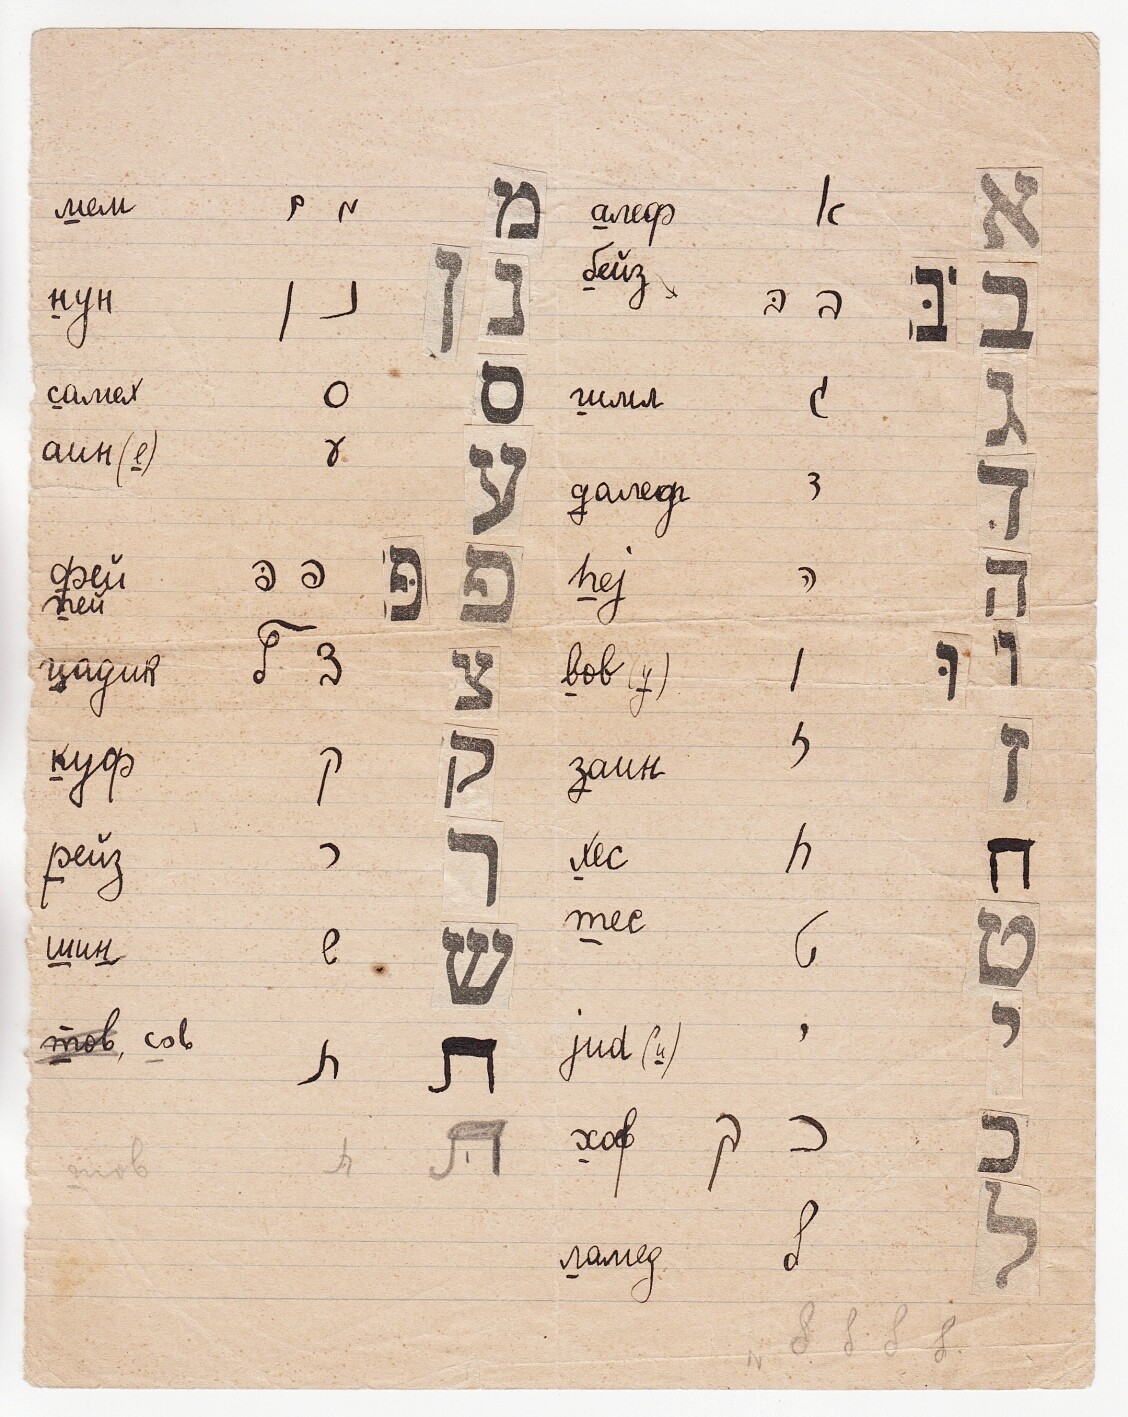 алеф א א
бейз בּ ב בּ ב
гимл ג ג
далед ד דּ
hej ה ה
вов (у) ו וּ ו
заин ז ז
хес ח ח
тес ט ט
jud (и) י י
хоф ך כ כ
ламед ל ל
мем ם מ מ
нун ן נ ן נ
самех ס ס
аин (е) ע ע
фей פּ פ פּ פ
пей
цадик ץ צ צ
куф ק ק
рейз ר ר
шин ש ש
тов, сов ת ת
тов ת תּ